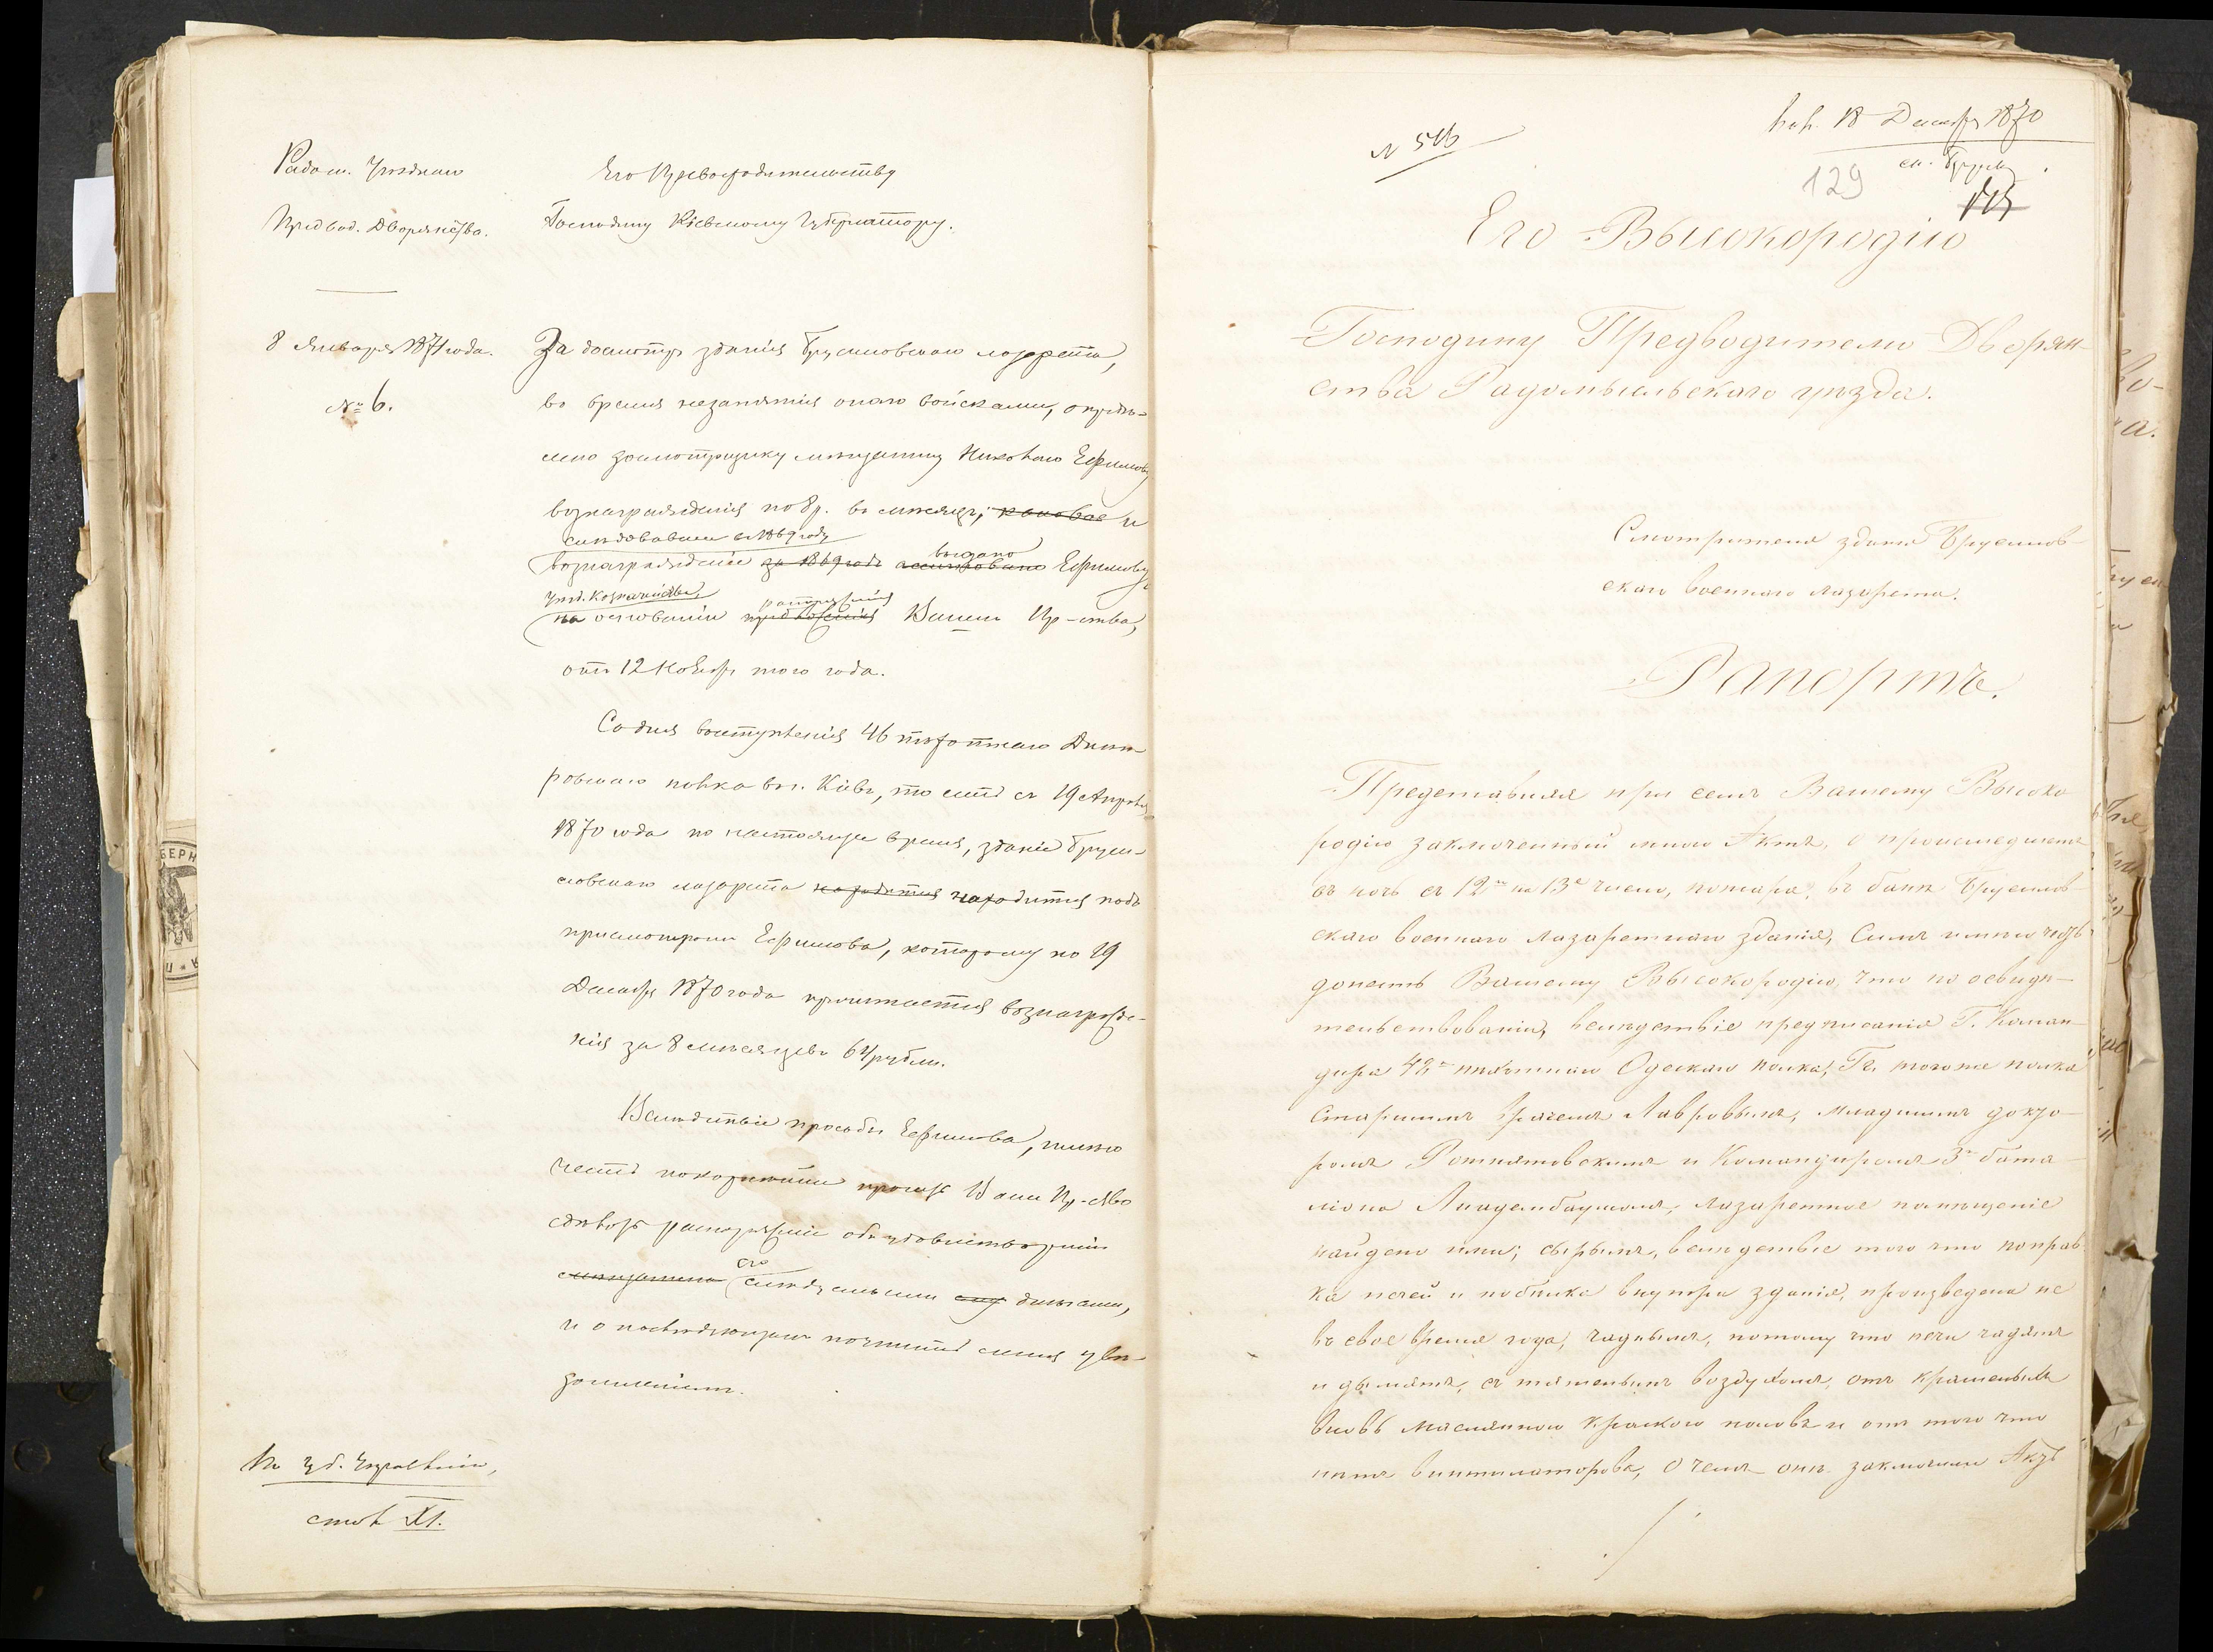 Радом. Уѣзднаго
Предвод. Дворянства.
8 Января 1871 года.
№ 6.
Его Превосходительству
Господину Кіевскому Губернатору.
За досмотръ зданія Брусиловскаго лазарета,
во время незанятія онаго войсками, опредѣ-
лено досмотрщику мѣщанину Ефимову
вознагражденія по 8 р. въ мѣсяцъ, каковое и
слѣдовавшее въ 1869 году
выдано
вознагражденіе за 1869 годъ ассигновано Ефимову
Уѣзд. Казначейства,
распоряженія
на основаніи предложенія Вашего Пр-ства,
отъ 12 Ноября того года.
Со дня выступленія 46 пѣхотнаго Днѣп-
ровскаго полка въ г. Кіевъ, то есть съ 19 Апрѣля
1870 года по настоящее время, зданіе Бруси-
ловскаго лазарета находится находится подъ
присмотромъ Ефимова, которому по 19
Декабря 1870 года причитается вознагражде-
нія за 8 мѣсяцевъ 64 рубли.
Вслѣдствіе просьбы Ефимова, имѣю
честь покорнѣйше просить Ваше Пр-ство
сдѣлать распоряженіе объ удовлетвореніи
его
мѣщанина слѣдуемыми ему деньгами,
и о послѣдующемъ почтить меня увѣ-
домленіемъ.
По
стол XI.
№ 516
пол. 18 Декабря 1870
129
Его Высокородію
Господину Предводителю Дворян-
ства Радомысльскаго уѣзда.
Смотрителя зданія Брусилов-
скаго военнаго лазарета.
Рапортъ.
Представляя при семъ Вашему Высоко
родію заключенный мною Актъ, о происшедшемъ
въ ночь съ 12го на 13е число, пожара, въ банѣ Брусилов-
скаго военнаго лазаретнаго зданія, Симъ имѣю честь
донесть Вашему Высокородію, что по освидѣ-
тельствованіи, вслѣдствіе предписанія Г. Коман-
дира 48го пѣхотнаго Одескаго полка, Гг. того же полка
Старшимъ врачемъ Лавровымъ, младшимъ докто-
ромъ и Командиромъ 3го бата-
ліона лазаретное помѣщеніе
найдено ими; сырымъ, вслѣдствіе того что поправ-
ка печей и побѣлка внутри зданія, произведена не
въ свое время года, чаднымъ, потому что печи чадятъ
и дымятъ, съ тяжелымъ воздухомъ, отъ крашеныхъ
вновь маслянною краскою половъ и отъ того что
нѣтъ вентиляторовъ, О чемъ они заключили Актъ